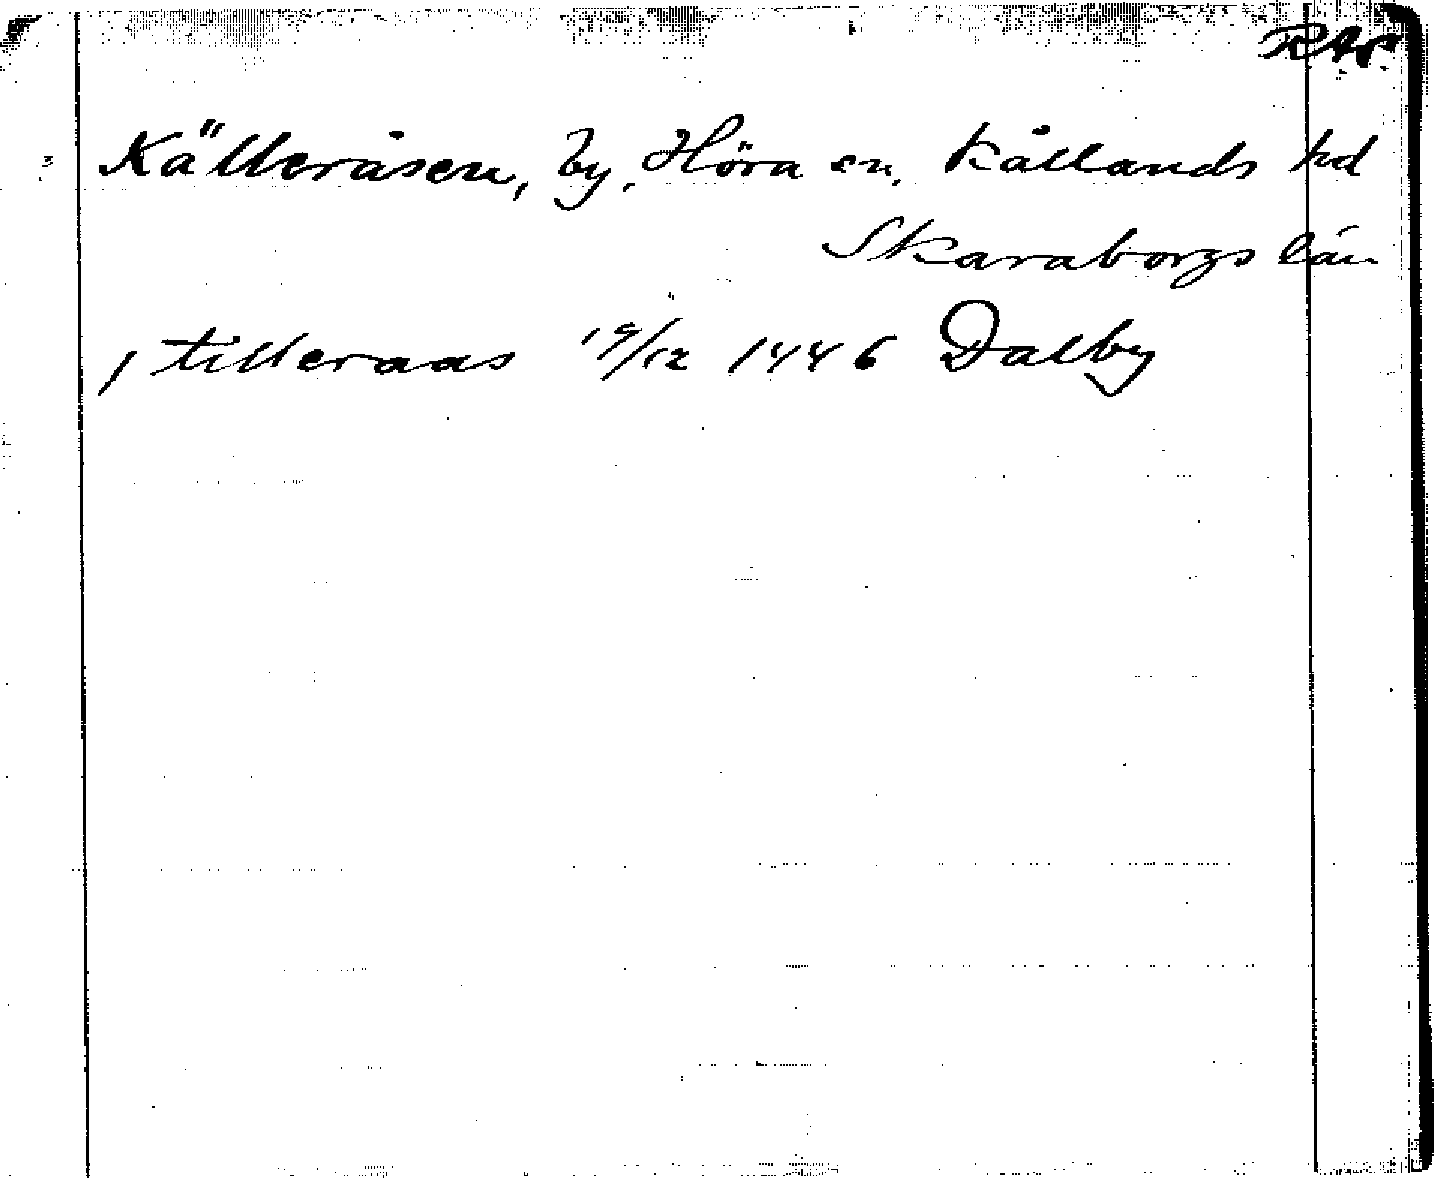 RAp
Källeråsen, by, Höra sn, Kållands hd
Skaraborgs län
, tilleraas 19/12 1446 Dalby